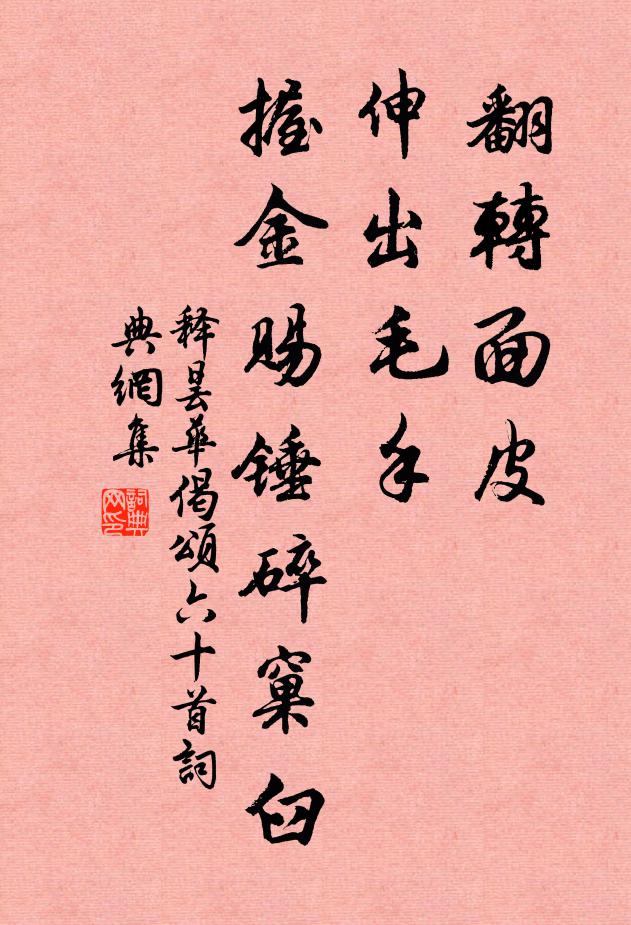 翻轉面皮
伸出毛手
握金賜錘碎窠臼
释曇華偈頌六十首詞
典網集
詞典網印